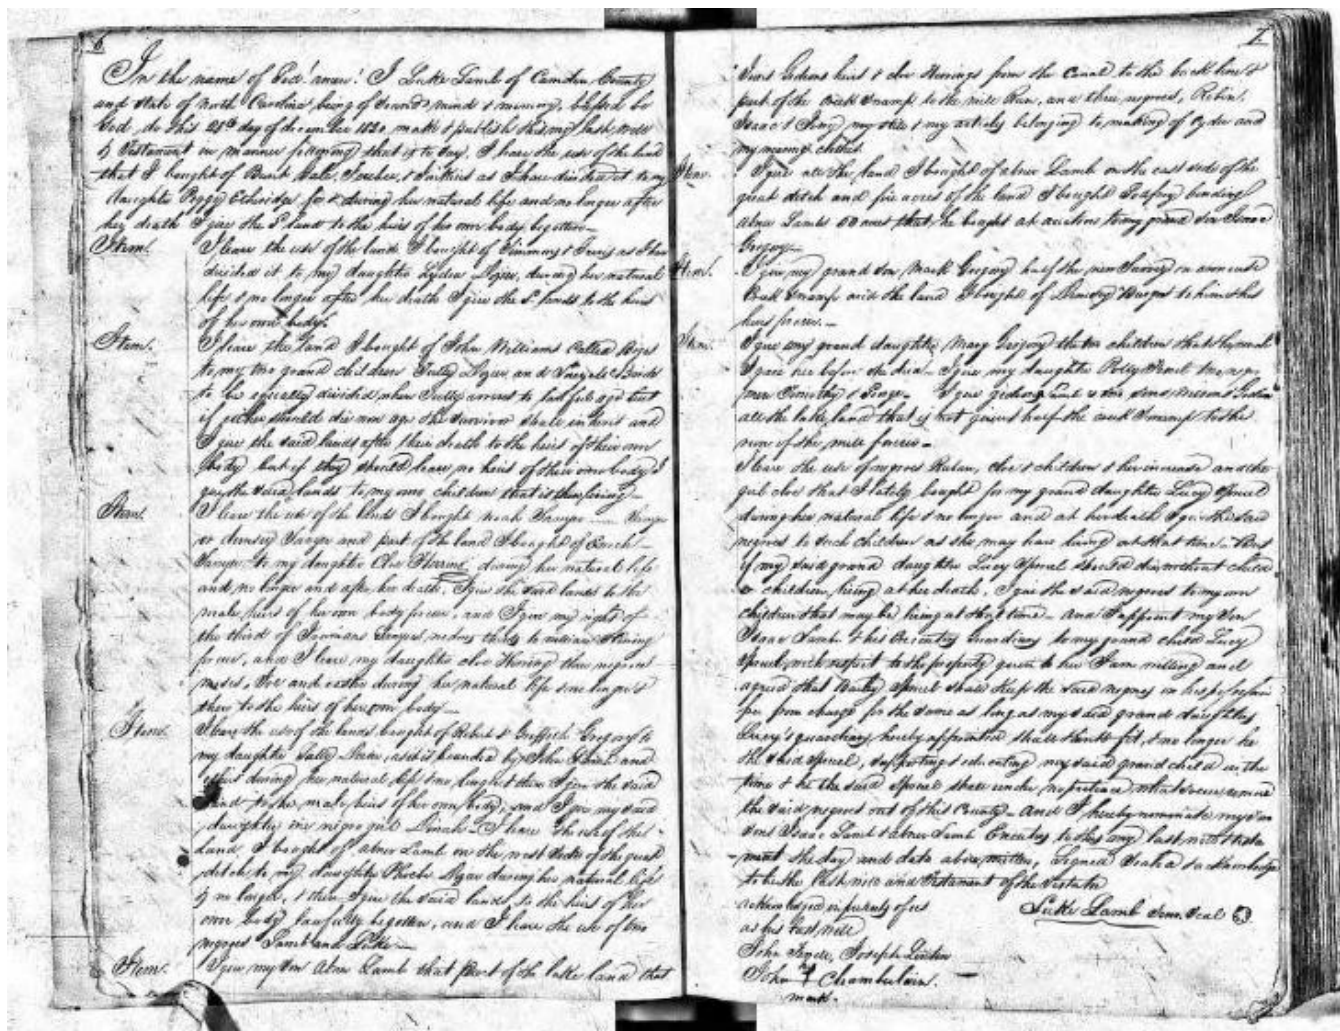 6
In the name of God! amen! I Luke Lamb of Camden County
and State of North Carolina being of Sound mind & memory, blessed be
God, do this 21st day of december 1820 make & publish this my last will
& Testament in manner following that is to Say, I leave the use of the land
that I bought of as I have divided it to my
daughter Peggy Etheridge, for & during her natural life and no longer after
her death I give the Sd. land to the heirs of her own body begotten—
Item. I leave the use of the lands I bought of Timmons & as I have
divided it to my daughter Lydia during her natural
life & no longer after her death I give the Sd. lands to the heirs
of her own body.
Item. I leave the land I bought of John Williams Called
to my two grand children Tully and
to be equally divided when Tully arrives to lawful age but
if either should die non age the Survivor shall inherit and
I give the said lands after their death to the heirs of their own
body but if they should leave no heirs of their own body I
give the said lands to my own children that is then living—
Item. I leave the use of the lands I bought Noah Sawyer
or Sawyer and part of the land I bought of Enoch
Sawyer to my daughter Cloe Herring, during her natural life
and no longer and after her death, I give the said lands to the
male heirs of her own body forever, and I give my right of
the third of to William Herring
forever, and I leave my daughter Cloe Herring three negroes
and during her natural life & no longer &
then to the heirs of her own body—
Item. I leave the use of the lands bought of Robert & Griffith Gregory to
my daughter Sally as it is by John and
during her natural life & no longer & then I give the said
land to the male heirs of her own body, and I give my said
daughter one negro girl Dinah I leave the use of the
land I bought of abner Lamb on the west side of the great
ditch to my daughter Phoebe during her natural life
& no longer, & then I give the said lands to the heirs of her
own body lawfully begotten, and I leave the use of two
negroes Lamb and Luke—
Item. I give my Son Abner Lamb that part of the lake land that
7
heirs & cloe Herrings from the Canal to the back line &
part of the Creek Swamp to the mill Run, and three negroes, Robin,
Isaac & my still & my articles belonging to making of Cyder and
my wearing clothes.
Item. I give all the land I bought of abner Lamb on the east side of the
great ditch and five acres of the land I bought binding
abner Lambs 50 acres that he bought at auction to my grand Son Isaac
Gregory—
Item. I give my grand Son Mark Gregory half the new Survey in
Creek Swamp and the land I bought of to him & his
heirs forever.—
Item. I give my grand daughter Mary Gregory the two children that
I gave her before she died— I give my daughter Polly two
men Timothy & I give
all the lake land that is not given & half the creek Swamp to the
run of the mill forever—
I leave the use of negroes cloe & children & her increase and the
girl cloe that I lately bought for my grand daughter Lucy Spruel
during her natural life & no longer and at her death I give the said
negroes to such children as she may have living at that time— But
if my said grand daughter Lucy Spruel should die without child
or children, living at her death, I give the said negroes to my own
children that may be living at that time— and I appoint my Son
Isaac Lamb & his Executors Guardians to my grand child Lucy
Spruel with respect to the property given to her I am willing and
agreed that Spruel shall keep the said negroes in his possession
free from charge for the same as long as my said grand daughter
Lucy's guardians hereby appointed shall think fit, & no longer he
the said Spruel, supporting & educating my said grand child in the
time & he the said Spruel shall under no pretence whatsoever remove
the said negroes out of this County— and I hereby nominate my two
Sons Isaac Lamb & abner Lamb Executors to this my last will & testa
ment the day and date above written, Signed Sealed & acknowledged
to be the last will and Testament of the Testator
acknowledged in presents of us
as his last will
Luke Lamb Senr. Seal
John Joseph
John Chamberlain.
mark.